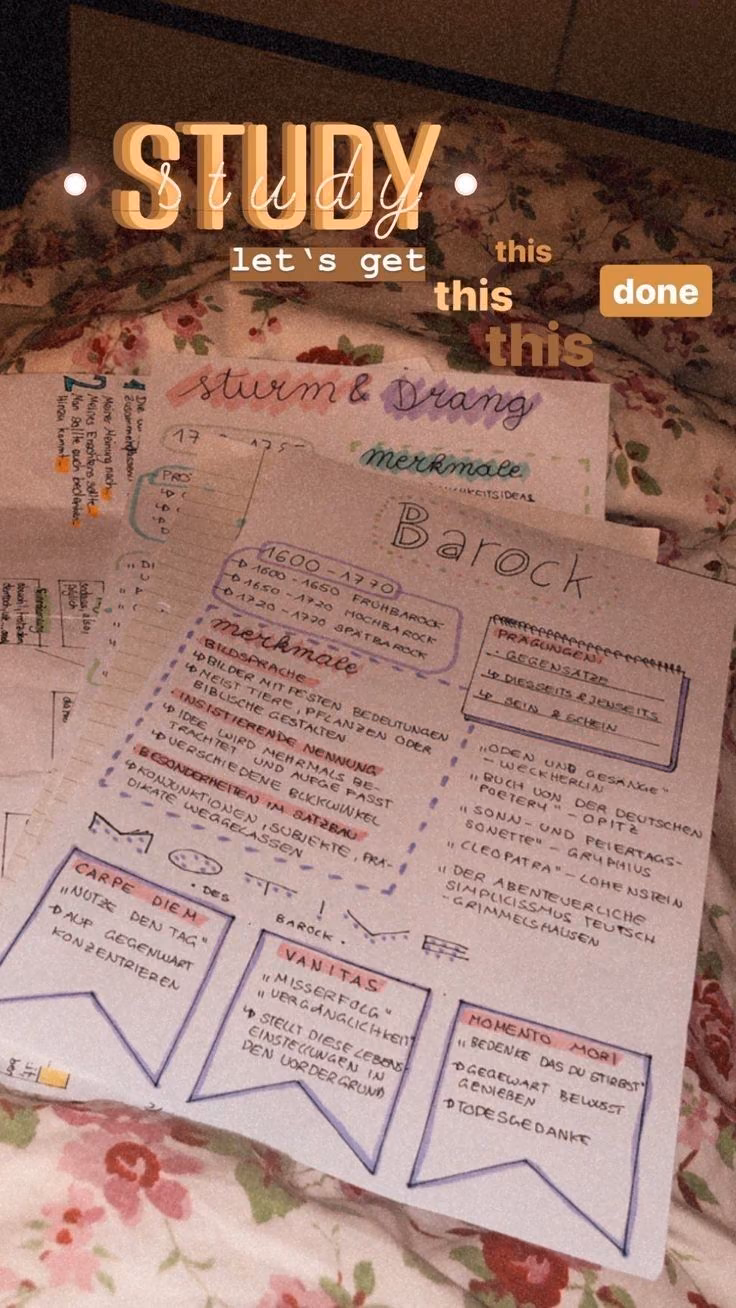 STUDY
study
let`s get
this
this
this
done
Sturm & Drang
Merkmale
PRO
2
Meiner Meinung nach
Meines Erachtens sollte
Man sollte auch bedenken
Hinzu kommt
Barock
1600-1770
↳ 1600-1650 FRÜHBAROCK
↳ 1650-1720 HOCHBAROCK
↳ 1720-1770 SPÄTBAROCK
Merkmale
BILDSPRACHE
↳ BILDER MIT FESTEN BEDEUTUNGEN
↳ MEIST TIERE, PFLANZEN ODER
BIBLISCHE GESTALTEN
INSISTIERENDE NENNUNG
↳ IDEE WIRD MEHRMALS BE-
TRACHTET UND AUFGEFASST
↳ VERSCHIEDENE BLICKWINKEL
BESONDERHEITEN IM SATZBAU
↳ KONJUNKTIONEN, SUBJEKTE, PRÄ-
DIKATE WEGGELASSEN
PRÄGUNGEN:
• GEGENSÄTZE
↳ DIESSEITS & JENSEITS
↳ SEIN & SCHEIN
„ODEN UND GESÄNGE"
- WECKHERLIN
„BUCH VON DER DEUTSCHEN
POETERY" - OPITZ
„SONN- UND FEIERTAGS-
SONETTE" - GRYPHIUS
„CLEOPATRA" - LOHENSTEIN
„DER ABENTEUERLICHE
SIMPLICISSMUS TEUTSCH
- GRIMMELSHAUSEN
MOTIVE
• DES
BAROCK •
CARPE DIEM
„NUTZE DEN TAG"
↳ AUF GEGENWART
KONZENTRIEREN
VANITAS
„MISSERFOLG"
„VERGÄNGLICHKEIT"
↳ STELLT DIESE LEBENS-
EINSTELLUNGEN IN
DEN VORDERGRUND
MOMENTO MORI
„BEDENKE DAS DU STIRBST"
↳ GEGEWART BEWUSST
GENIEßEN
↳ TODESGEDANKE